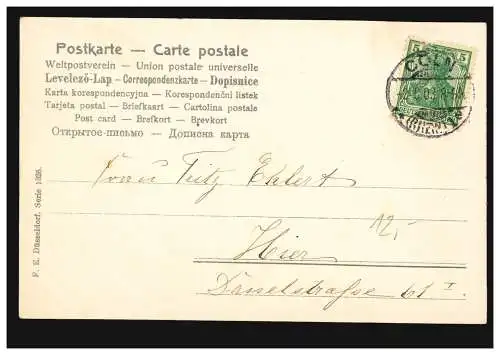 Postkarte — Carte postale
Weltpostverein — Union postale universelle
Levelező-Lap — Correspondenzkarte — Dopisnice
Karta korespondencyjna — Korespondenční listek
Tarjeta postal — Briefkaart — Cartolina postale
Post card — Brefkort — Brevkort
Открытое-письмо — Дописна карта
5 5
CÖLN
(RHEIN)
Fritz Ehlert
12,-
Hier
Düsselstrasse 61 I
F. K. Düsseldorf. Serie 1028.